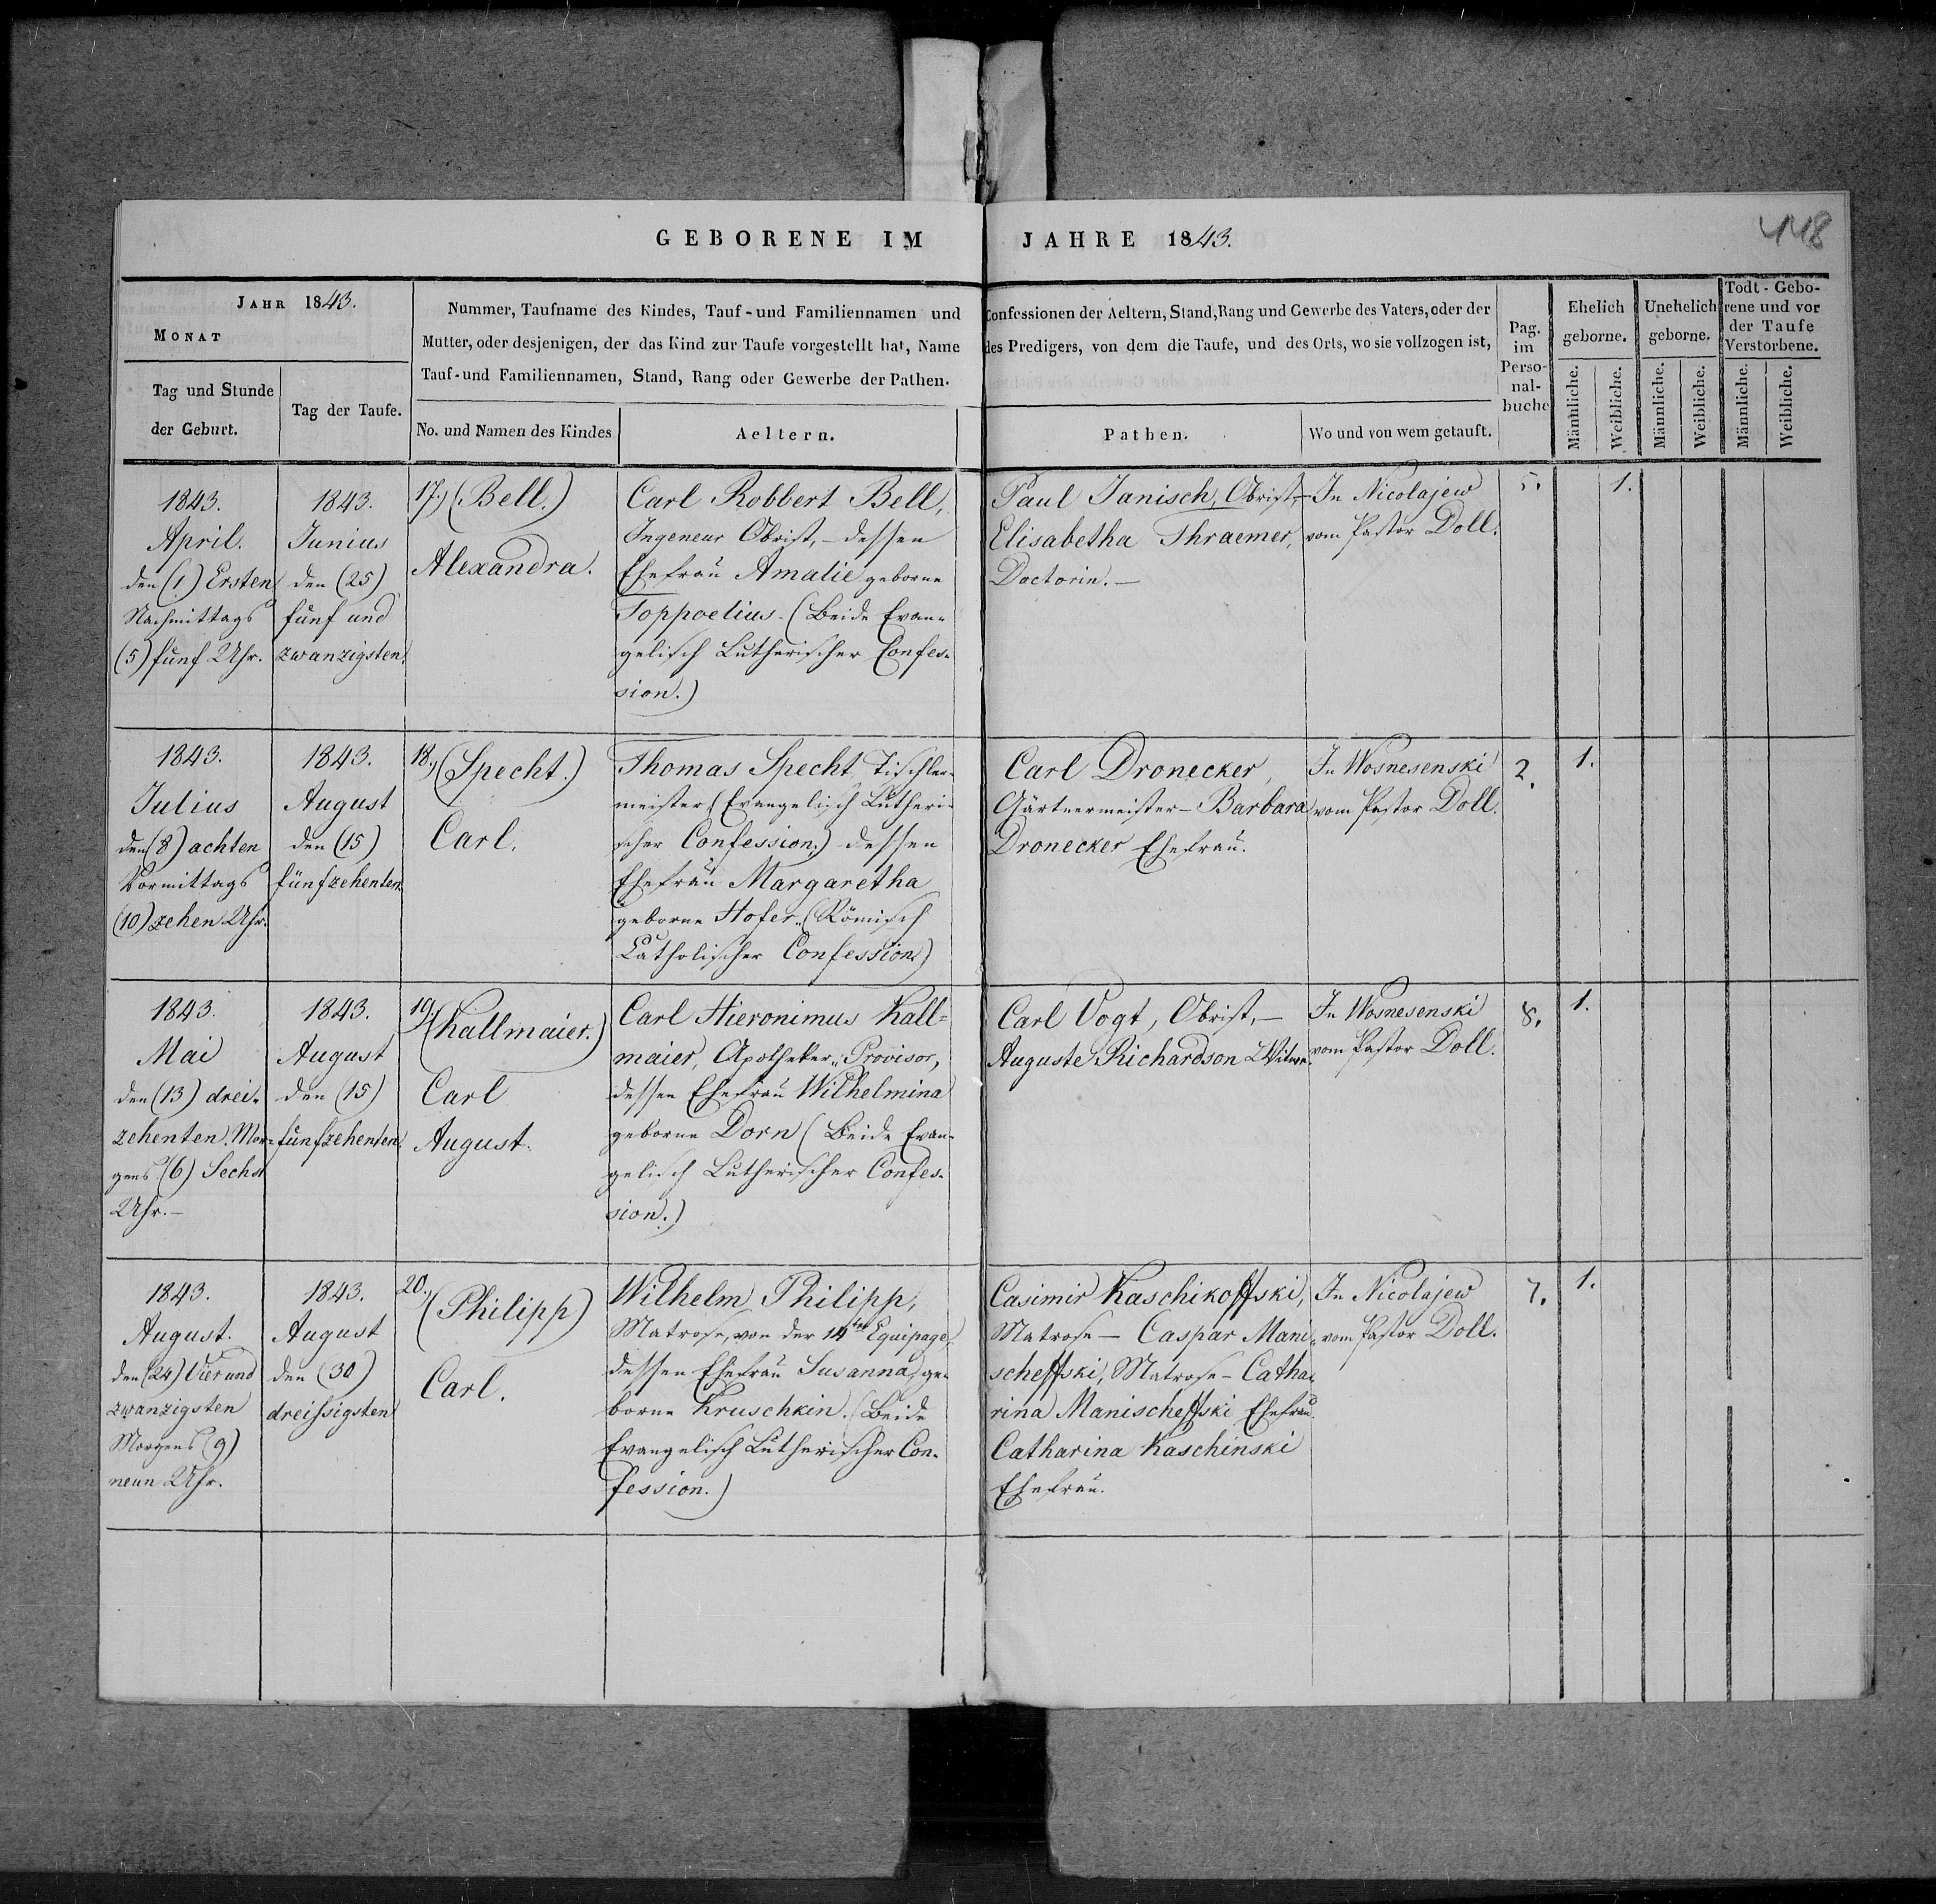 GEBORENE IM JAHRE 1843.
448
JAHR 1843.
MONAT
Tag und Stunde
der Geburt.
Tag der Taufe.
Nummer, Taufname des Kindes, Tauf-und Familiennamen und Confessionen der Aeltern, Stand, Rang und Gewerbe des Vaters, oder der
Mutter, oder desjenigen, der das Kind zur Taufe vorgestellt hat, Name des Predigers, von dem die Taufe, und des Orts, wo sie vollzogen ist,
Tauf-und Familiennamen, Stand, Rang oder Gewerbe der Pathen.
No. und Namen des Kindes
Aeltern.
Pathen.
Wo und von wem getauft.
Pag.
im
Perso-
nal-
buche
Ehelich
geborne.
Unehelich
geborne.
Todt-Gebo-
rene und vor
der Taufe
Verstorbene.
Männliche.
Weibliche.
Männliche.
Weibliche.
Männliche.
Weibliche.
1843.
April.
den (1.) Ersten
Nachmittags
(5) fünf Uhr.
1843.
Junius
den (25)
fünf und
zwanzigsten.
17.) (Bell.)
Alexandra.
Carl Robbert Bell,
Ingeneur Obrist, - dessen
Ehefrau Amalie geborne
Toppoelius. (Beide Evan-
gelisch Lutherischer Confes-
sion.)
Paul Janisch, Obrist, -
Elisabetha Thraemer,
Doctorin. -
In Nicolajew
vom Pastor Doll.
5.
1.
1843.
Julius
den (8) achten
Vormittags
(10) zehen Uhr.
1843.
August
den (15)
fünfzehenten
18., (Specht.)
Carl.
Thomas Specht, Tischler-
meister (Evangelisch Lutheri-
scher Confession.) dessen
Ehefrau Margaretha
geborne Hofer. (Römisch
Catholischer Confession)
Carl Dronecker,
Gärtnermeister - Barbara
Dronecker Ehefrau.
In Wosnesenski
vom Pastor Doll.
2.
1.
1843.
Mai
den (13) drei-
zehenten, Mor-
gens (6) Sechs
Uhr. -
1843.
August
den (15)
fünfzehenten
19., (Kallmaier.)
Carl
August.
Carl Hieronimus Kall-
maier, Apotheker-Provisor,
dessen Ehefrau Wilhelmina
geborne Dorn (Beide Evan-
gelisch Lutherischer Confes-
sion.)
Carl Vogt, Obrist, -
Auguste Richardson Witwe.
In Wosnesenski
vom Pastor Doll.
8.
1.
1843.
August.
den (24) Vier und
zwanzigsten
Morgens (9)
neun Uhr.
1843.
August
den (30)
dreissigsten
20., (Philipp)
Carl.
Wilhelm Philipp,
Matrose, von der 14ten Equipage,
dessen Ehefrau Susanna, ge-
borne Kruschkin. (Beide
Evangelisch Lutherischer Con-
fession.)
Casimir Kaschikoffski,
Matrose - Caspar Mani-
scheffski, Matrose - Catha-
rina Manischeffski Ehefrau
Catharina Kaschinski
Ehefrau.
In Nicolajew
vom Pastor Doll.
7.
1.